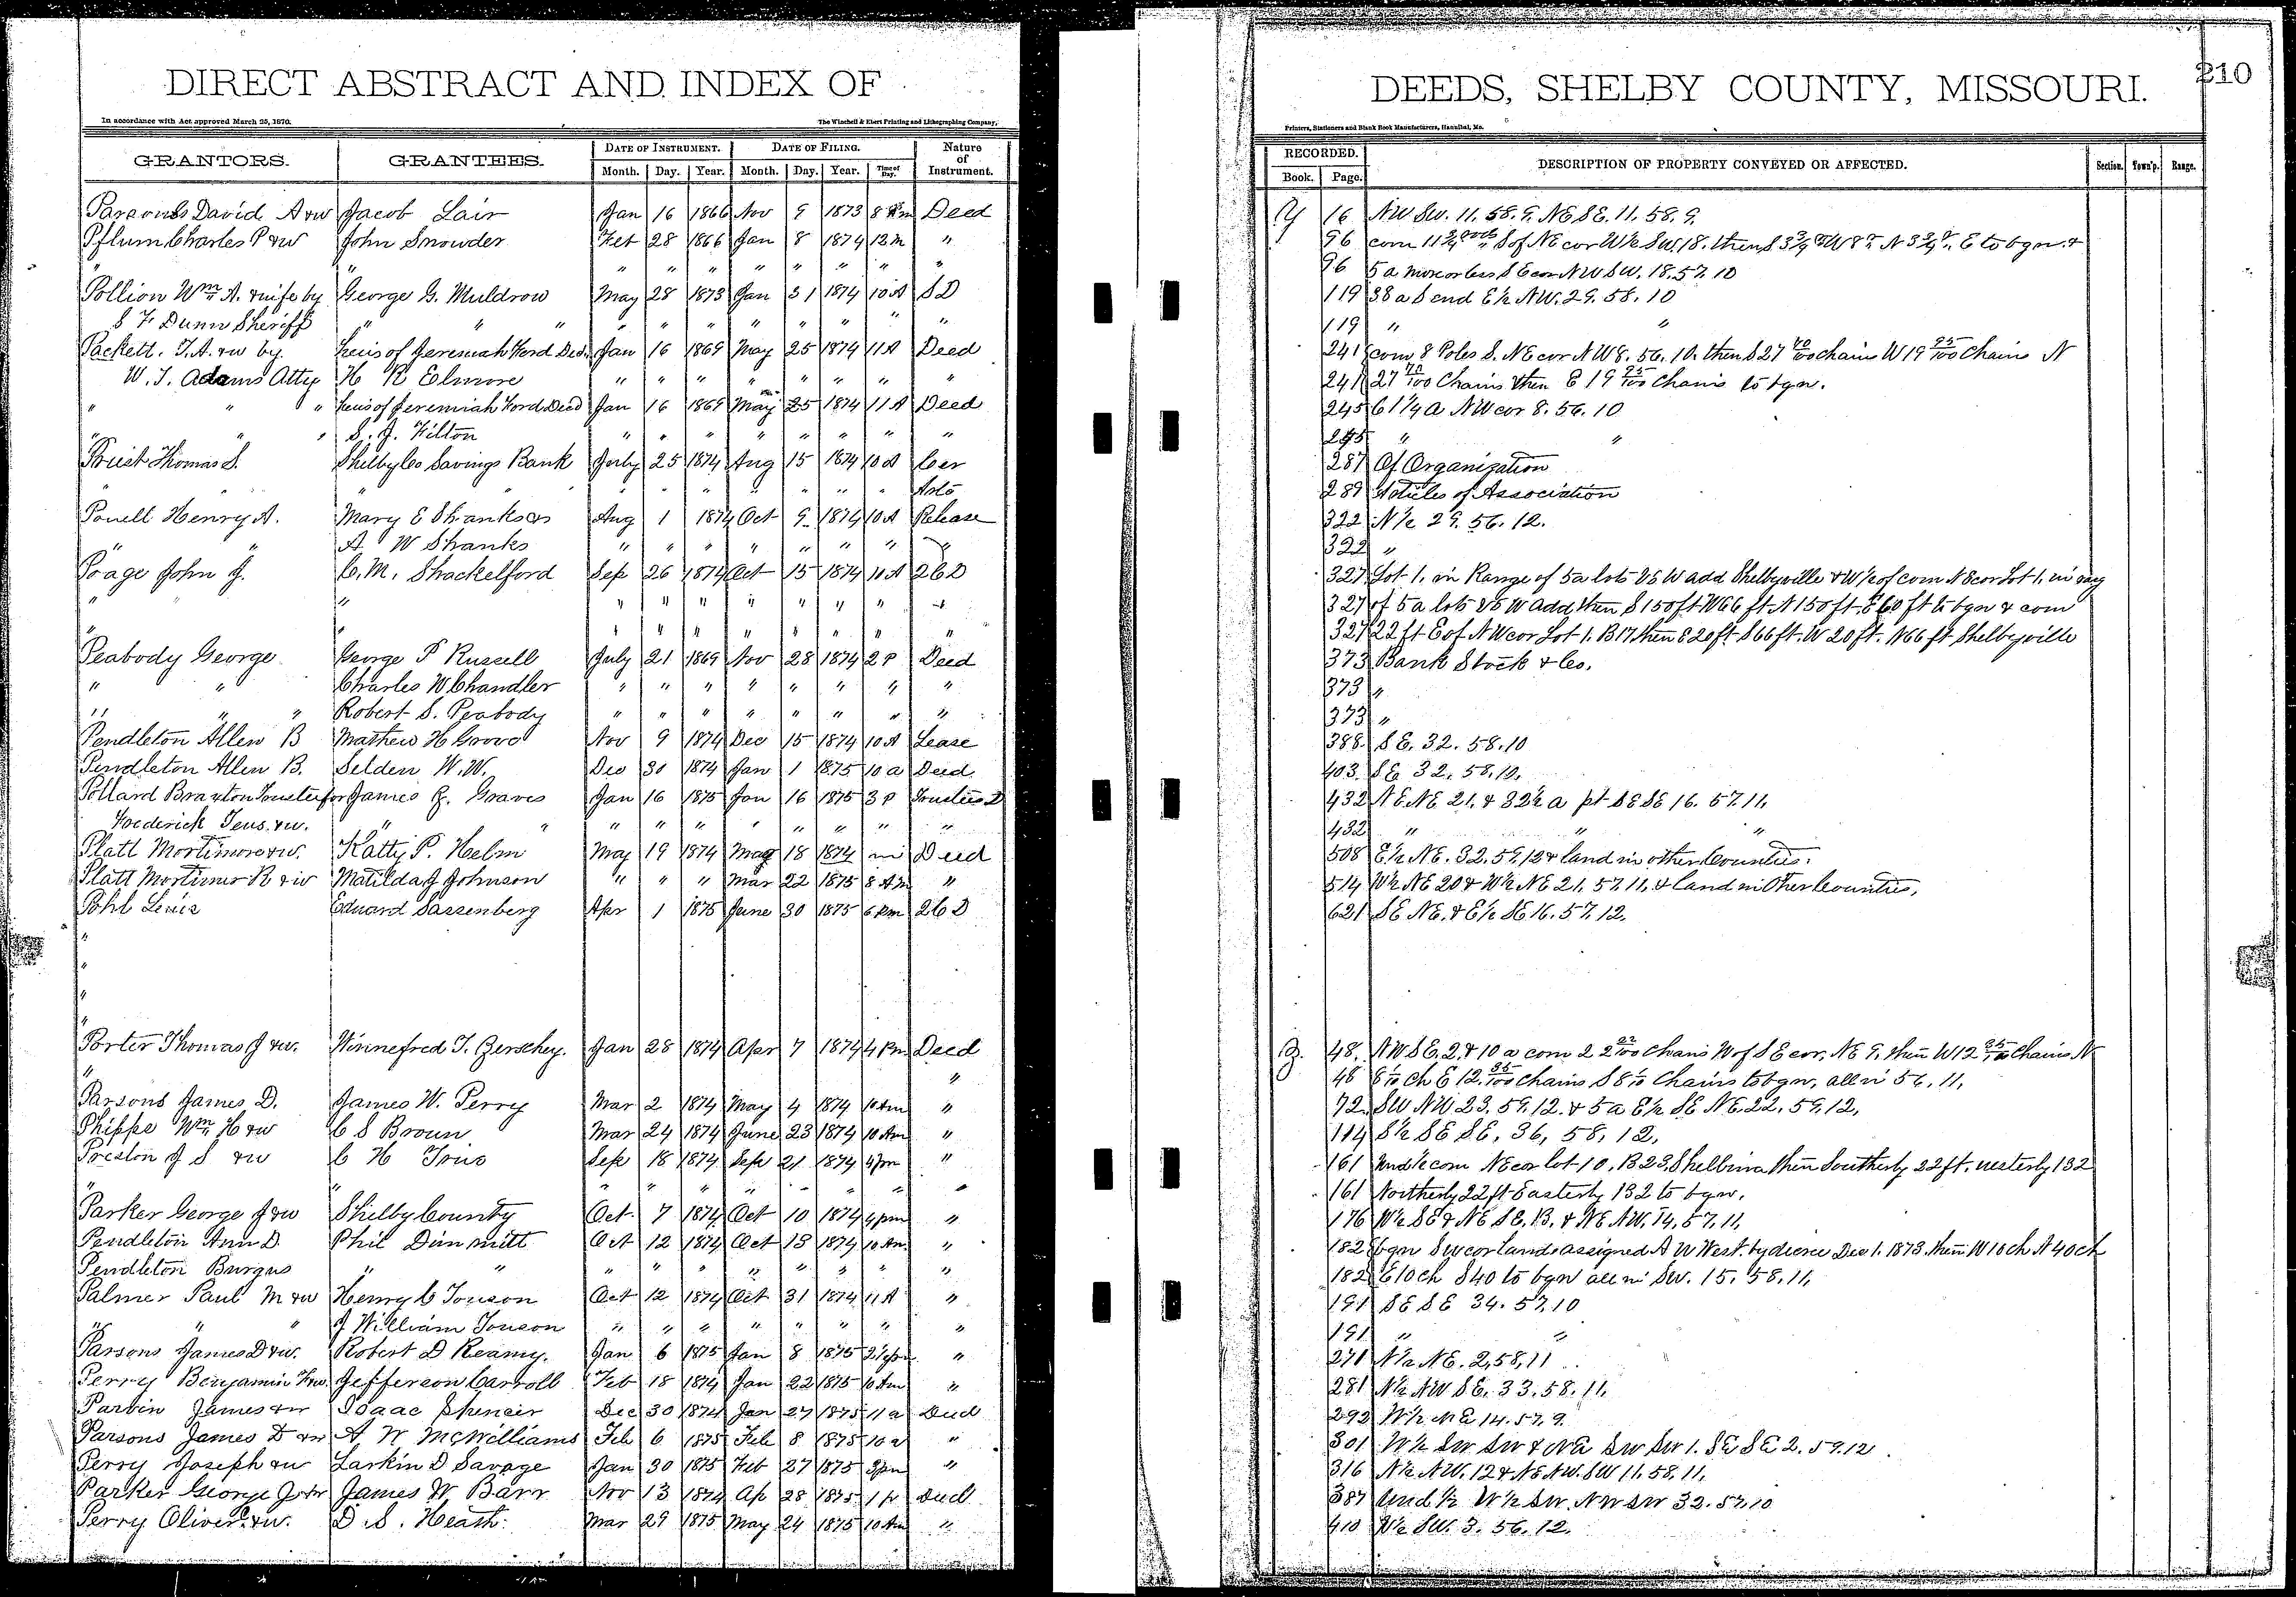 DIRECT ABSTRACT AND INDEX OF
In accordance with Act approved March 25, 1870.
The Winchell & Ebert Printing and Lithographing Company,
GRANTORS. GRANTEES. DATE OF INSTRUMENT. DATE OF FILING. Nature of Instrument.
Month. Day. Year. Month. Day. Year. Time of Day.
Parsons David A & w Jacob Lair Jan 16 1866 Nov 9 1873 8 Am Deed
Pflum Charles P & w John Snowder Feb 28 1866 Jan 8 1874 12 m "
" " " " " " " "
Pollion Wm A. & wife by George G. Muldrow May 28 1873 Jan 31 1874 10 A S D
S F Dunn Sheriff " " " " " " " " " " "
Packett. T. A. & w by Heirs of Jeremiah Ford Decd. Jan 16 1869 May 25 1874 11 A Deed
W. J. Adams Atty H R Elmore " " " " " " " "
" " " Heirs of Jeremiah Ford Decd Jan 16 1869 May 25 1874 11 A Deed
" " " S. J. Hilton " " " " " " " "
Priest Thomas S. Shelby Co Savings Bank July 25 1874 Aug 15 1874 10 A Cer
" " " " " " " " " Asso
Powell Henry A. Mary E Shanks Aug 1 1874 Oct 9 1874 10 A Release
" " A W Shanks " " " " " " " "
Poage John J. C. M. Shackelford Sep 26 1874 Oct 15 1874 10 A 2 6 D
" " " " " " " " " "
" " " " " " " " "
Peabody George George P Russell July 21 1869 Nov 28 1874 2 P Deed
" " Charles W Chandler " " " " " " " "
" " " Robert S. Peabody " " " " " " " "
Pendleton Allen B Mathew H Grove Nov 9 1874 Dec 15 1874 10 A Lease
Pendleton Allen B. Selden W. W. Dec 30 1874 Jan 1 1875 10 a Deed
Pollard Braxton Trustee for James R. Graves Jan 16 1875 Jan 16 1875 3 P Trustees D
Frederick Teus. & w. " " " " " " " " " "
Platt Mortimore & w. Katty P. Helm May 19 1874 May 18 1874 Deed
Platt Mortimer R & w Matilda J Johnson " " " Mar 22 1875 8 Am "
Pohl Lewis Eduard Sassenberg Apr 1 1875 June 30 1875 6 Pm 2 6 D
"
"
"
"
Porter Thomas J & w. Winnefred T. Gerschey. Jan 28 1874 Apr 7 1874 4 Pm Deed
" "
Parsons James D. James W. Perry Mar 2 1874 May 4 1874 10 Am "
Phipps Wm H & w C S Brown Mar 24 1874 June 23 1874 10 Am "
Preston J S & w C H True Sept 18 1874 Sept 21 1874 4 pm "
" " " " " " " " " "
Parker George J & w Shelby County Oct. 7 1874 Oct 10 1874 4 pm "
Pendleton Ann D Phil Dimmitt Oct 12 1874 Oct 13 1874 10 Am "
Pendleton Burgus " " " " " " " " " "
Palmer Paul M & w Henry C Touson Oct 12 1874 Oct 31 1874 11 A "
" " " J William Touson " " " " " " " "
Parsons James D & w. Robert D Reamy. Jan 6 1875 Jan 8 1875 "
Perry Benjamin F & w. Jefferson Carroll Feb 18 1874 Jan 22 1875 10 Am "
Parvin James & w Isaac Spencer Dec 30 1874 Jan 27 1875 11 a Deed
Parsons James D & w A W McWilliams Feb 6 1875 Feb 8 1875 10 a "
Perry Joseph & w Larkin D Savage Jan 30 1875 Feb 27 1875 3 pm "
Parker George J & w James W Barr Nov 13 1874 Ap 28 1875 1 p Deed
Perry Oliver P. & w. D. S. Heath. Mar 29 1875 May 24 1875 10 Am "
DEEDS, SHELBY COUNTY, MISSOURI.
210
Printers, Stationers and Blank Book Manufacturers, Hannibal, Mo.
RECORDED. DESCRIPTION OF PROPERTY CONVEYED OR AFFECTED. Section. Town'p. Range.
Book. Page.
Y 16 NW SW. 11. 58. 9. NE SE. 11. 58. 9.
96 com 11 3/4 rods S of NE cor W 1/2 SW. 18. then S 3 3/4 W 8 N 3 3/4 E to bgn. &
96 5 a more or less SE cor NW SW. 18. 57. 10
119 38 a S end E 1/2 NW. 29. 58. 10
119 " "
241 com 8 Poles S. NE cor NW 8. 56. 10. then S 27 70/100 chains W 19 95/100 Chains N
241 27 70/100 Chains then E 19 95/100 Chains to bgn.
245 61 1/4 a NW cor 8. 56. 10
245 " "
287 Of Organization
289 Articles of Association
322 N 1/2 29. 56. 12.
322 "
327 Lot 1. in Range of 5 a lots S W add Shelbyville & W 1/2 of com NE cor Lot 1. in rang
327 of 5 a lots S W add then S 150 ft W 66 ft N 150 ft. E 60 ft to bgn & com
327 22 ft E of NW cor Lot 1. B 17 then E 20 ft S 66 ft. W 20 ft. N 66 ft Shelbyville
373 Bank Stock & Co.
373 "
373 "
388. SE. 32. 58. 10
403. SE 32. 58. 10.
432 NE. NE 21. & 32 1/2 a pt SE SE 16. 57. 11.
432 " " "
508 E 1/2 NE. 32. 59. 12 & land in other Counties.
514 W 1/2 NE 20 & W 1/2 NE 21. 57. 11. & land in Other Counties.
621 SE NE. & E 1/2 SE 16. 57. 12.
Z. 48. NW SE. 2. & 10 a com 2 22/100 chains W of SE cor. NE 9. then W 12 35/100 Chains N
48 8 1/10 ch E 12. 35/100 Chains S 8 1/10 Chains to bgn. all in 56. 11.
72. SW NW 23. 59. 12. & 5 a E 1/2 SE NE. 22. 59. 12.
114 S 1/2 SE SE. 36, 58, 12.
161 Und 1/2 com NE cor lot 10. B 23. Shelbina then Southerly 22 ft. westerly 132
161 Northerly 22 ft Easterly 132 to bgn.
176 W 1/2 SE & NE SE. 13. & NE NW. 14. 57. 11.
182 bgn SW cor Land assigned A W West. by decree Dec 1. 1873. then W 10 ch N 40 ch
182 E 10 ch S 40 to bgn all in SW. 15. 58. 11.
191 SE SE 34. 57. 10
191 " "
271 N 1/2 NE. 2, 58, 11
281 N 1/2 NW SE. 33. 58. 11.
292 W 1/2 NE 14. 57. 9.
301 W 1/2 SW SW & NE SW SW 1. SE SE 2. 59. 12.
316 N 1/2 NW. 12 & NE NW. SW 11. 58. 11.
387 Und 1/2 W 1/2 SW. NW SW 32. 57. 10
410 W 1/2 SW. 3. 56. 12.